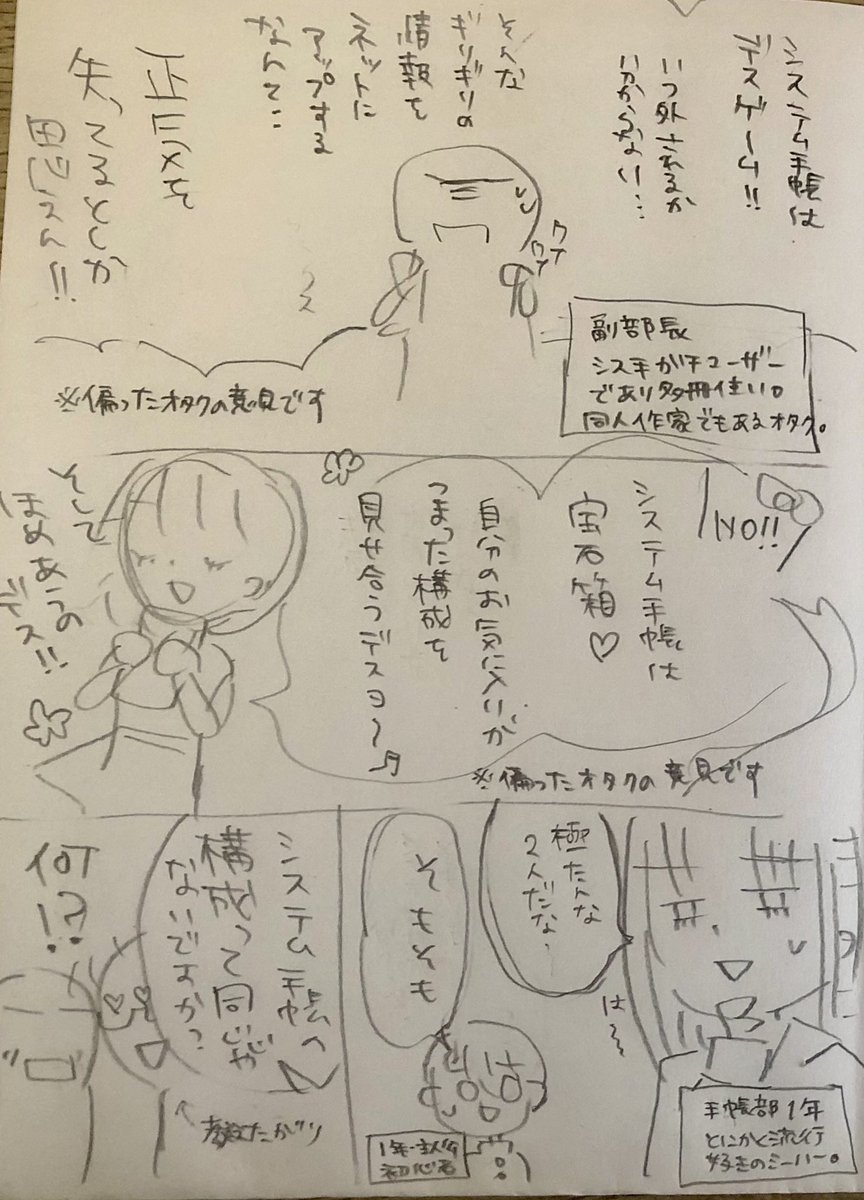 システム手帳は
デスゲーム!!
いつ外されるか
いかからない…
そんな
ギリギリの
情報を
ネットに
アップする
なんて…
正気を
失ってるとしか
思えん!!
ワナ
ワナ
副部長
シス手ガチユーザー
であり多冊使い。
同人作家でもあるオタク。
※偏ったオタクの意見です
NO!!
システム手帳は
宝石箱♡
自分のお気に入りが
つまった構成を
見せ合うデスヨ〜♪
そして
ほめあうの
デス!!
※偏ったオタクの意見です
極たんな
2人だな…
は〜
手帳部1年
とにかく流行
好きのミーハー。
そもそも
1年・主人公
初心者
システム手帳の
構成って同じじゃ
ないですか?
↑教えたがり
何!?